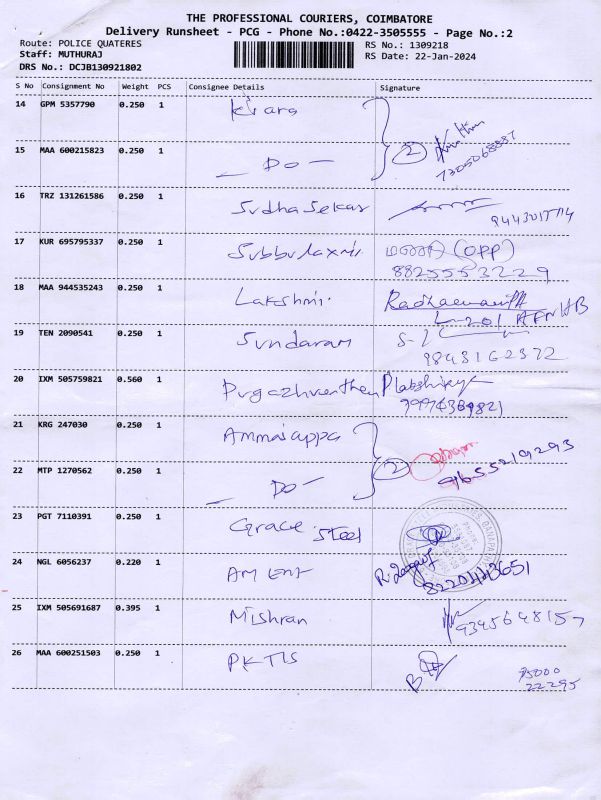 THE PROFESSIONAL COURIERS, COIMBATORE
Delivery Runsheet - PCG - Phone No.:0422-3505555 - Page No.:2
Route: POLICE QUATERES
RS No.: 1309218
Staff: MUTHURAJ
RS Date: 22-Jan-2024
DRS No.: DCJB130921802
S No Consignment No Weight PCS Consignee Details Signature
14 GPM 5357790 0.250 1 Kiara
15 MAA 600215823 0.250 1 - Do - 2
7305068887
16 TRZ 131261586 0.250 1 Sudha Sekar
17 KUR 695795337 0.250 1 Subbulaxmi (OPP)
8825553229
18 MAA 944535243 0.250 1 Lakshmi
L-201
19 TEN 2090541 0.250 1 Sundaram
9843162372
20 IXM 505759821 0.560 1 Pugazhventhey
21 KRG 247030 0.250 1 Ammaiappa
22 MTP 1270562 0.250 1 - Do - 2
9655219293
23 PGT 7110391 0.250 1 Grace Steel
24 NGL 6056237 0.220 1 AM Ent
8220443651
25 IXM 505691687 0.395 1 Mishran
9345648157
26 MAA 600251503 0.250 1 PKTLS
95000
22295